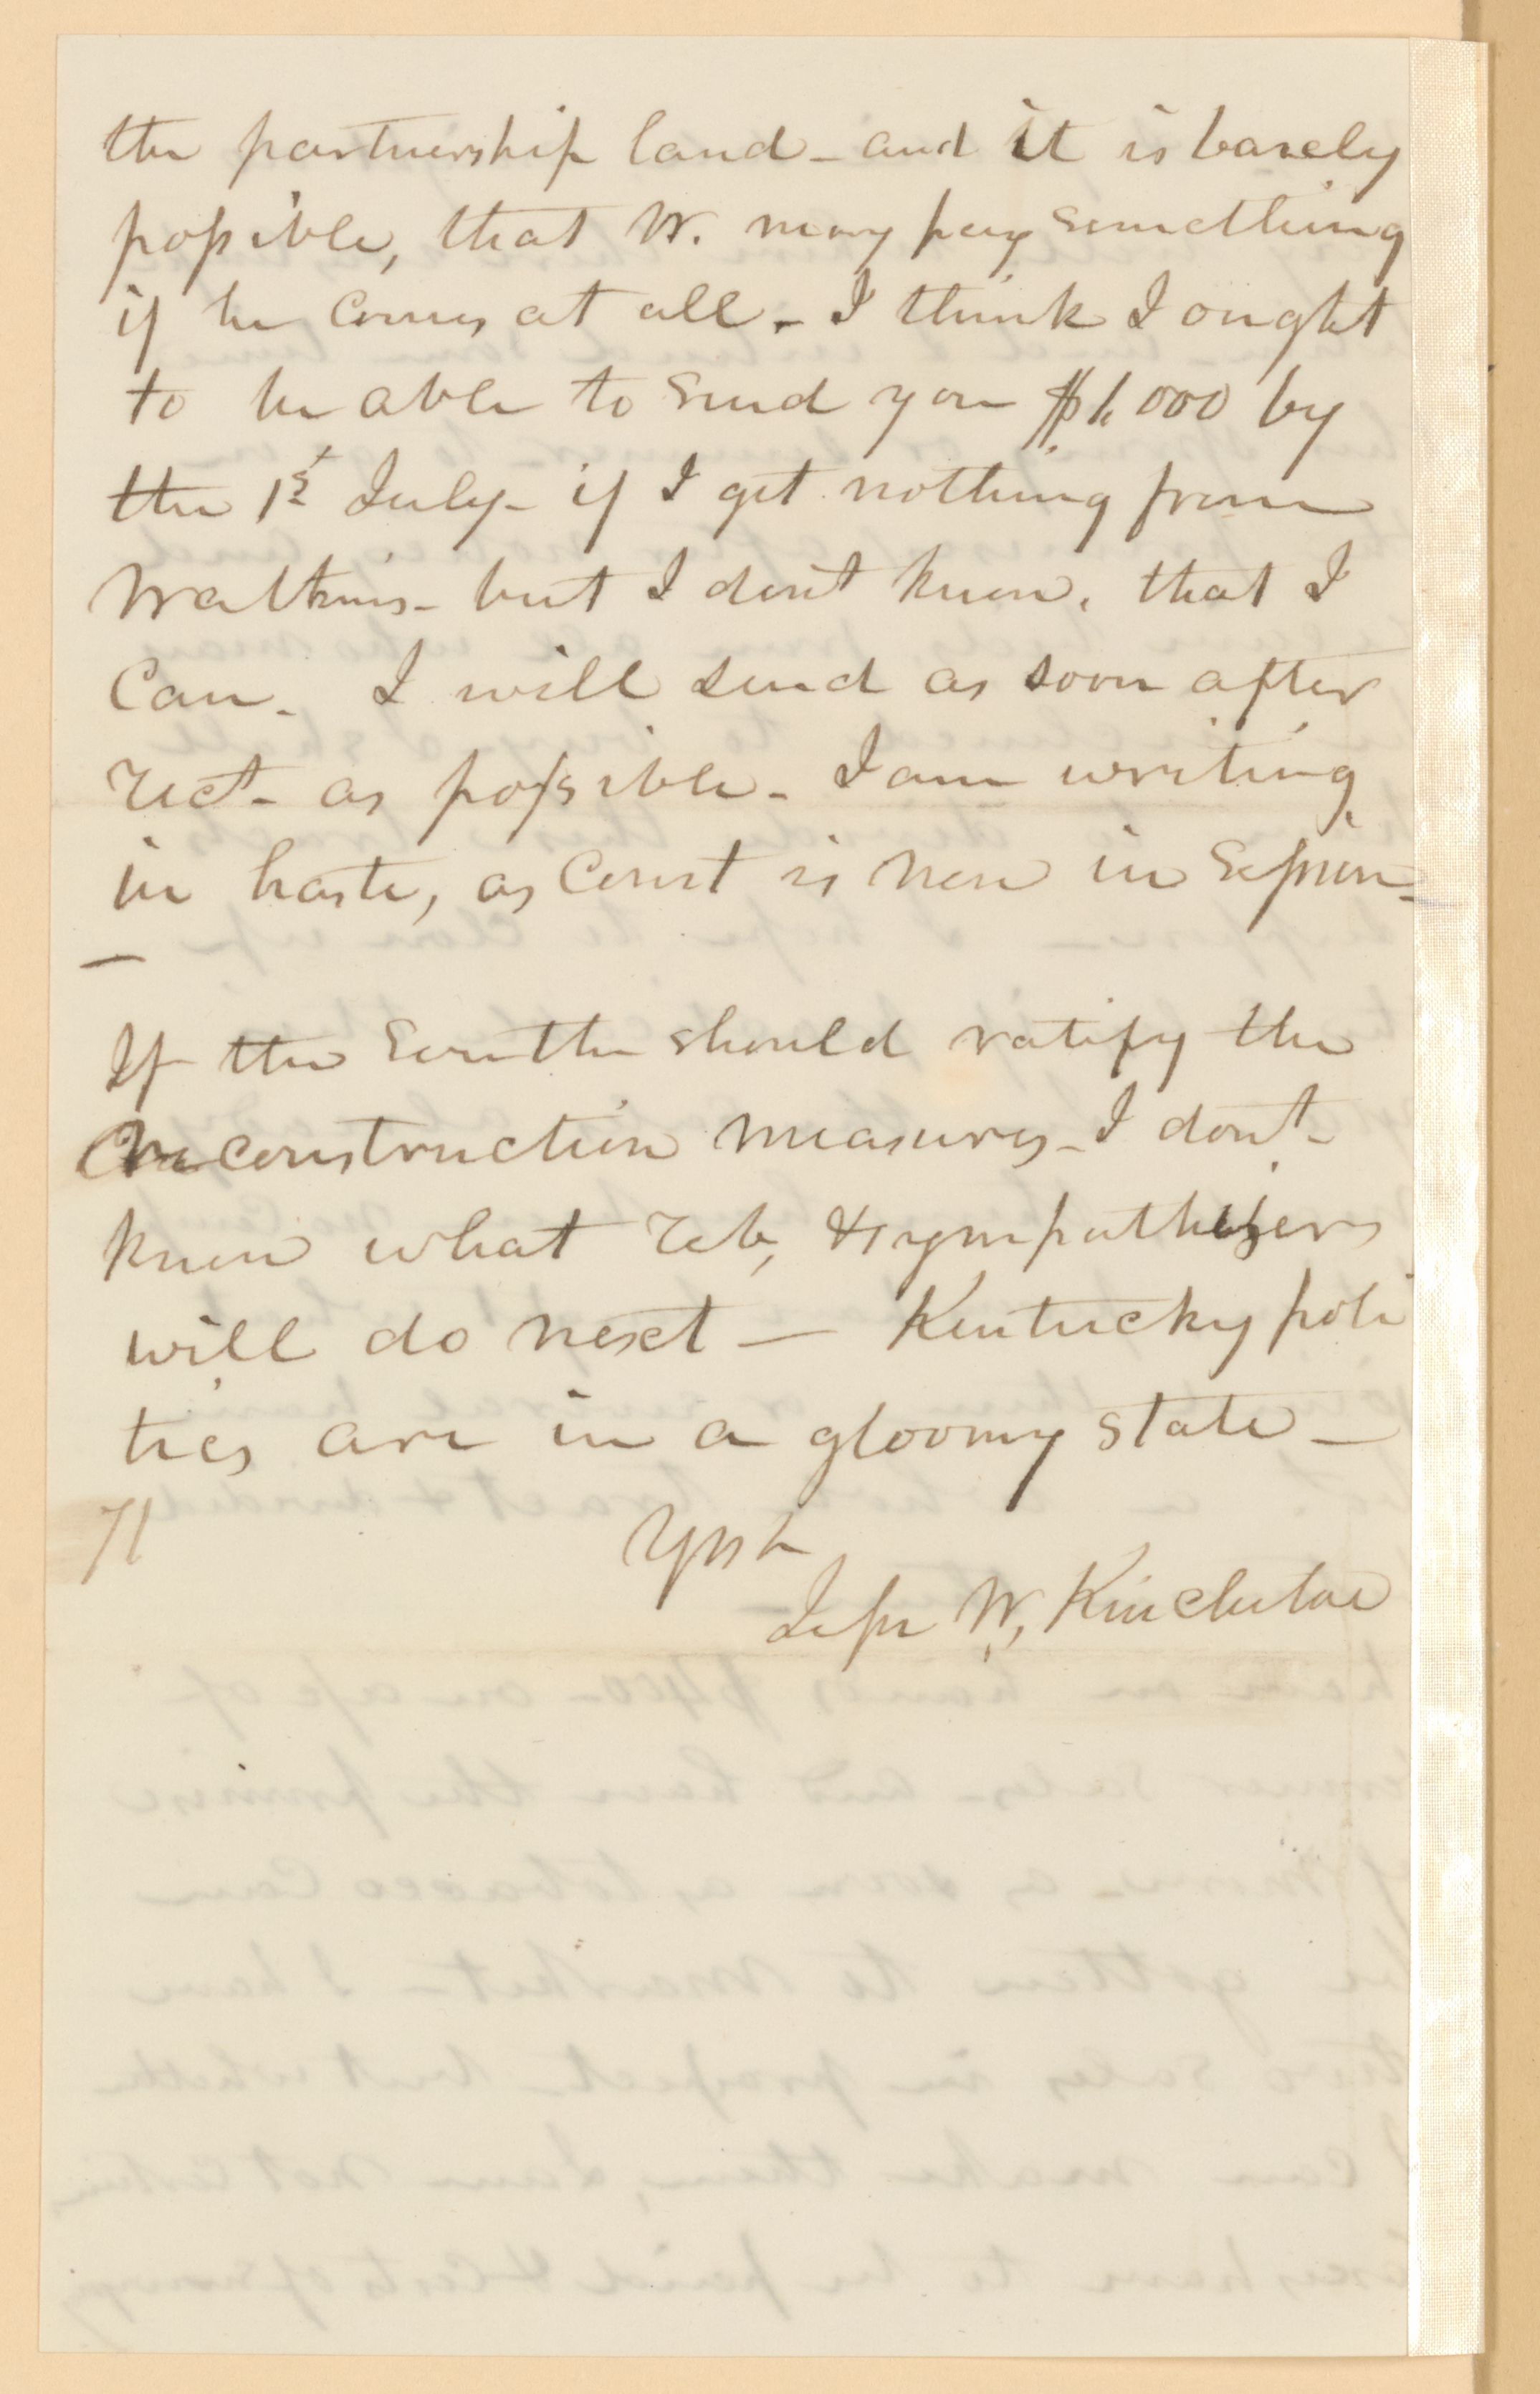 the partnership land - and it is barely
possible, that W. may pay something
if he comes at all - I think I ought
to be able to send you $1,000 by
the 1st July - if I get nothing from
Watkins - but I dont know, that I
can - I will send as soon after
rect - as possible - I am writing
in haste, as Court is now in Session -
—
If the South should ratify the
reconstruction measures - I dont -
know what reb, & sympathizers
will do next — Kentucky poli
tics are in a gloomy state —
71
Jesse W, Kincheloe